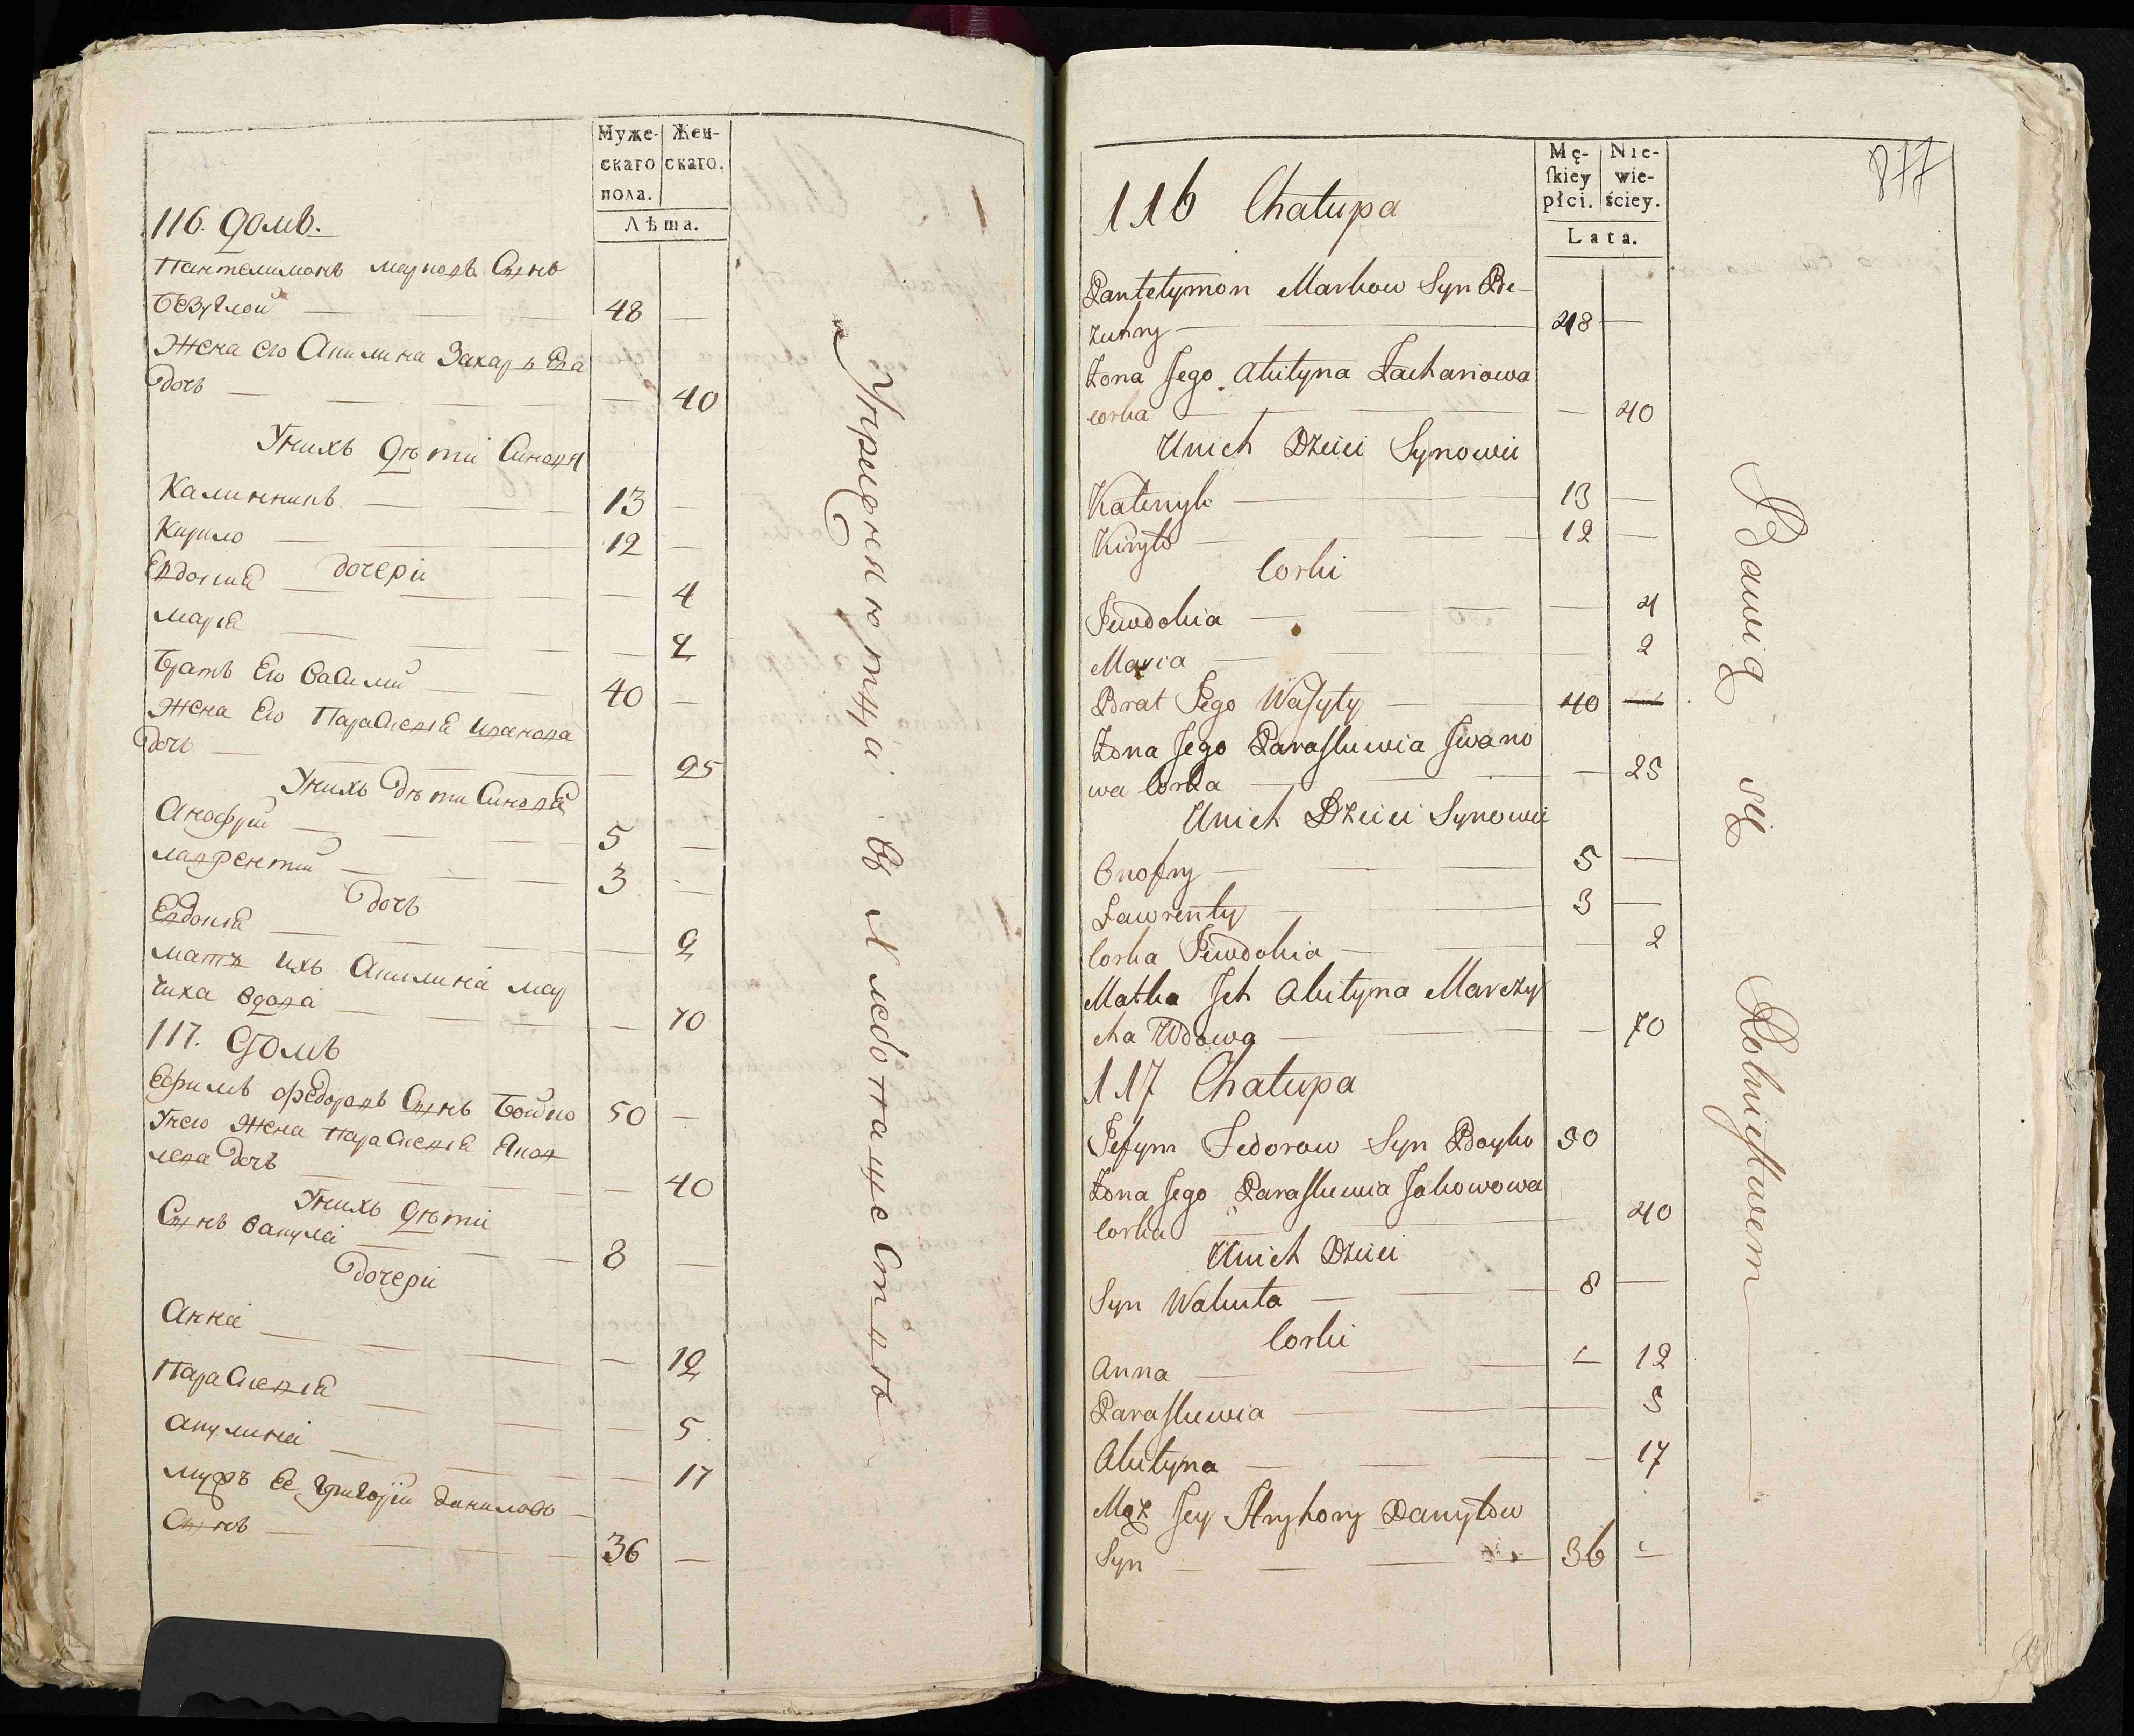 Муже-
скаго
пола.
Жен-
скаго.
Лѣта.
116. домъ.
Пантелимонъ марковъ Сынъ
Безуглой 48
Жена его Акилина Захарьева
дочь 40
Унихъ дѣти Синовя
Калинникъ 13
Кирило 12
дочери
Евдокия 4
марія 2
Братъ Его Василий 40
Жена Его Параскевія Иванова
дочь 25
Унихъ дѣти Синовя
Анофрій 5
лаврентій 3
дочь
Евдокія 2
мать ихъ Акилина мар
чиха вдова 70
117. домъ
Ефимъ федоровъ Сынъ Бойко 50
Унего Жена Параскевія Яков
лева дочь 40
Унихъ дѣти
Сынъ Вакула 8
дочери
Анна 12
Параскевія 5
Акулина 17
мужъ Ее григорій даниловъ
Сынъ 36
Упражняютца въ Хлебопашествѣ
877
Mę-
skiey
płci.
Nie-
wie-
ściey.
Lata.
116 Chałupa
Pantelymon Markow Syn Be-
zuhry 48
Zona Jego Akilyna Zachariowa
corka 40
Unich Dzieci Synowie
Kalenyk 13
Kiryło 12
Corki
Jewdokia 4
Maria 2
Brat Jego Wasyly 40
Zona Jego Paraskewia Iwano
wa Corka 25
Unich Dzieci Synowie
Onofry 5
Lawrenty 3
Corka Jewdokia 2
Matka Ich Akilyna Marczy
cha Wdowa 70
117 Chałupa
Jefym Fedorow Syn Boyko 50
Zona Jego Paraskewia Jakowowa
Corka 40
Unich Dzieci
Syn Wakuła 8
Corki
Anna 12
Paraskewia 5
Akilyna 17
Mąż Jey Hryhory Danyłow
Syn 36
Bawią się Rolnictwem